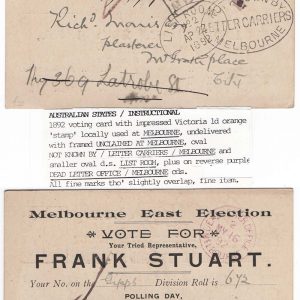 NOT KNOWN BY
LETTER CARRIERS
MELBOURNE
1892
Rich.d Morris Esq
plasterer
place
Try 369 Latrobe St
City
AUSTRALIAN STATES / INSTRUCTIONAL
1892 voting card with impressed Victoria 1d orange
'stamp' locally used at MELBOURNE, undelivered
with framed UNCLAIMED AT MELBOURNE, oval
NOT KNOWN BY / LETTER CARRIERS / MELBOURNE and
smaller oval d.s. LIST ROOM, plus on reverse purple
DEAD LETTER OFFICE / MELBOURNE cds.
All fine marks tho' slightly overlap, fine item.
Melbourne East Election
VOTE FOR
Your Tried Representative,
FRANK STUART.
Your No. on the Gipps Division Roll is 672
POLLING DAY,